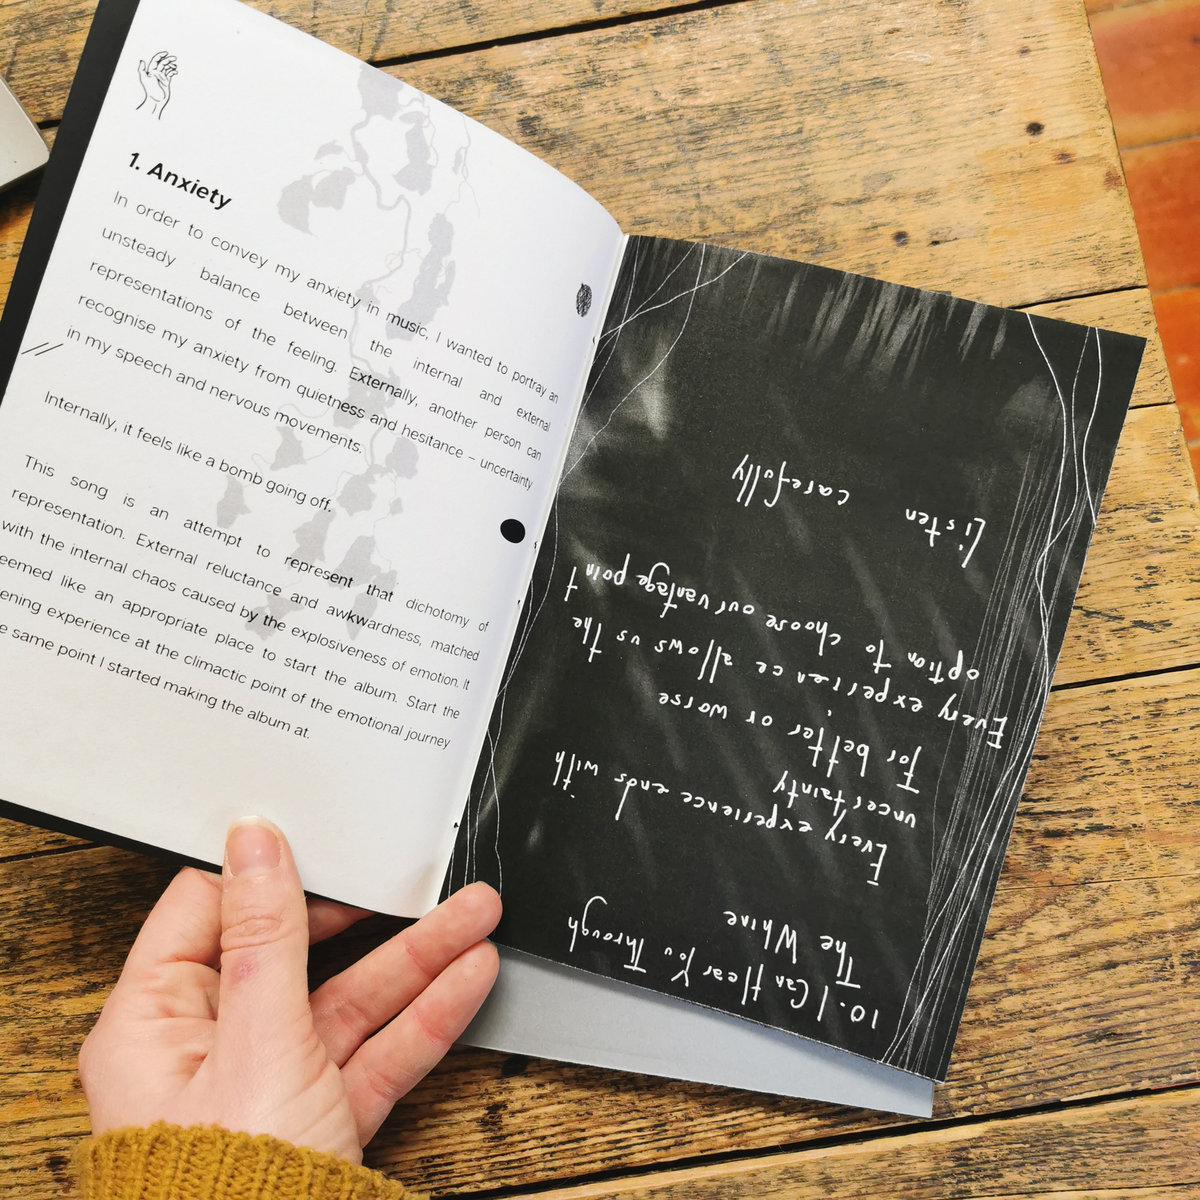 1. Anxiety
In order to convey my anxiety in music, I wanted to portray an
unsteady balance between the internal and external
representations of the feeling. Externally, another person can
recognise my anxiety from quietness and hesitance – uncertainty
in my speech and nervous movements.
Internally, it feels like a bomb going off.
This song is an attempt to represent that dichotomy of
representation. External reluctance and awkwardness, matched
with the internal chaos caused by the explosiveness of emotion. It
eemed like an appropriate place to start the album. Start the
ening experience at the climactic point of the emotional journey
e same point I started making the album at.
10. I Can Hear You Through
The Whine
Every experience ends with
uncertainty
For better or worse
Every experience allows us the
option to choose our vantage point
Listen carefully